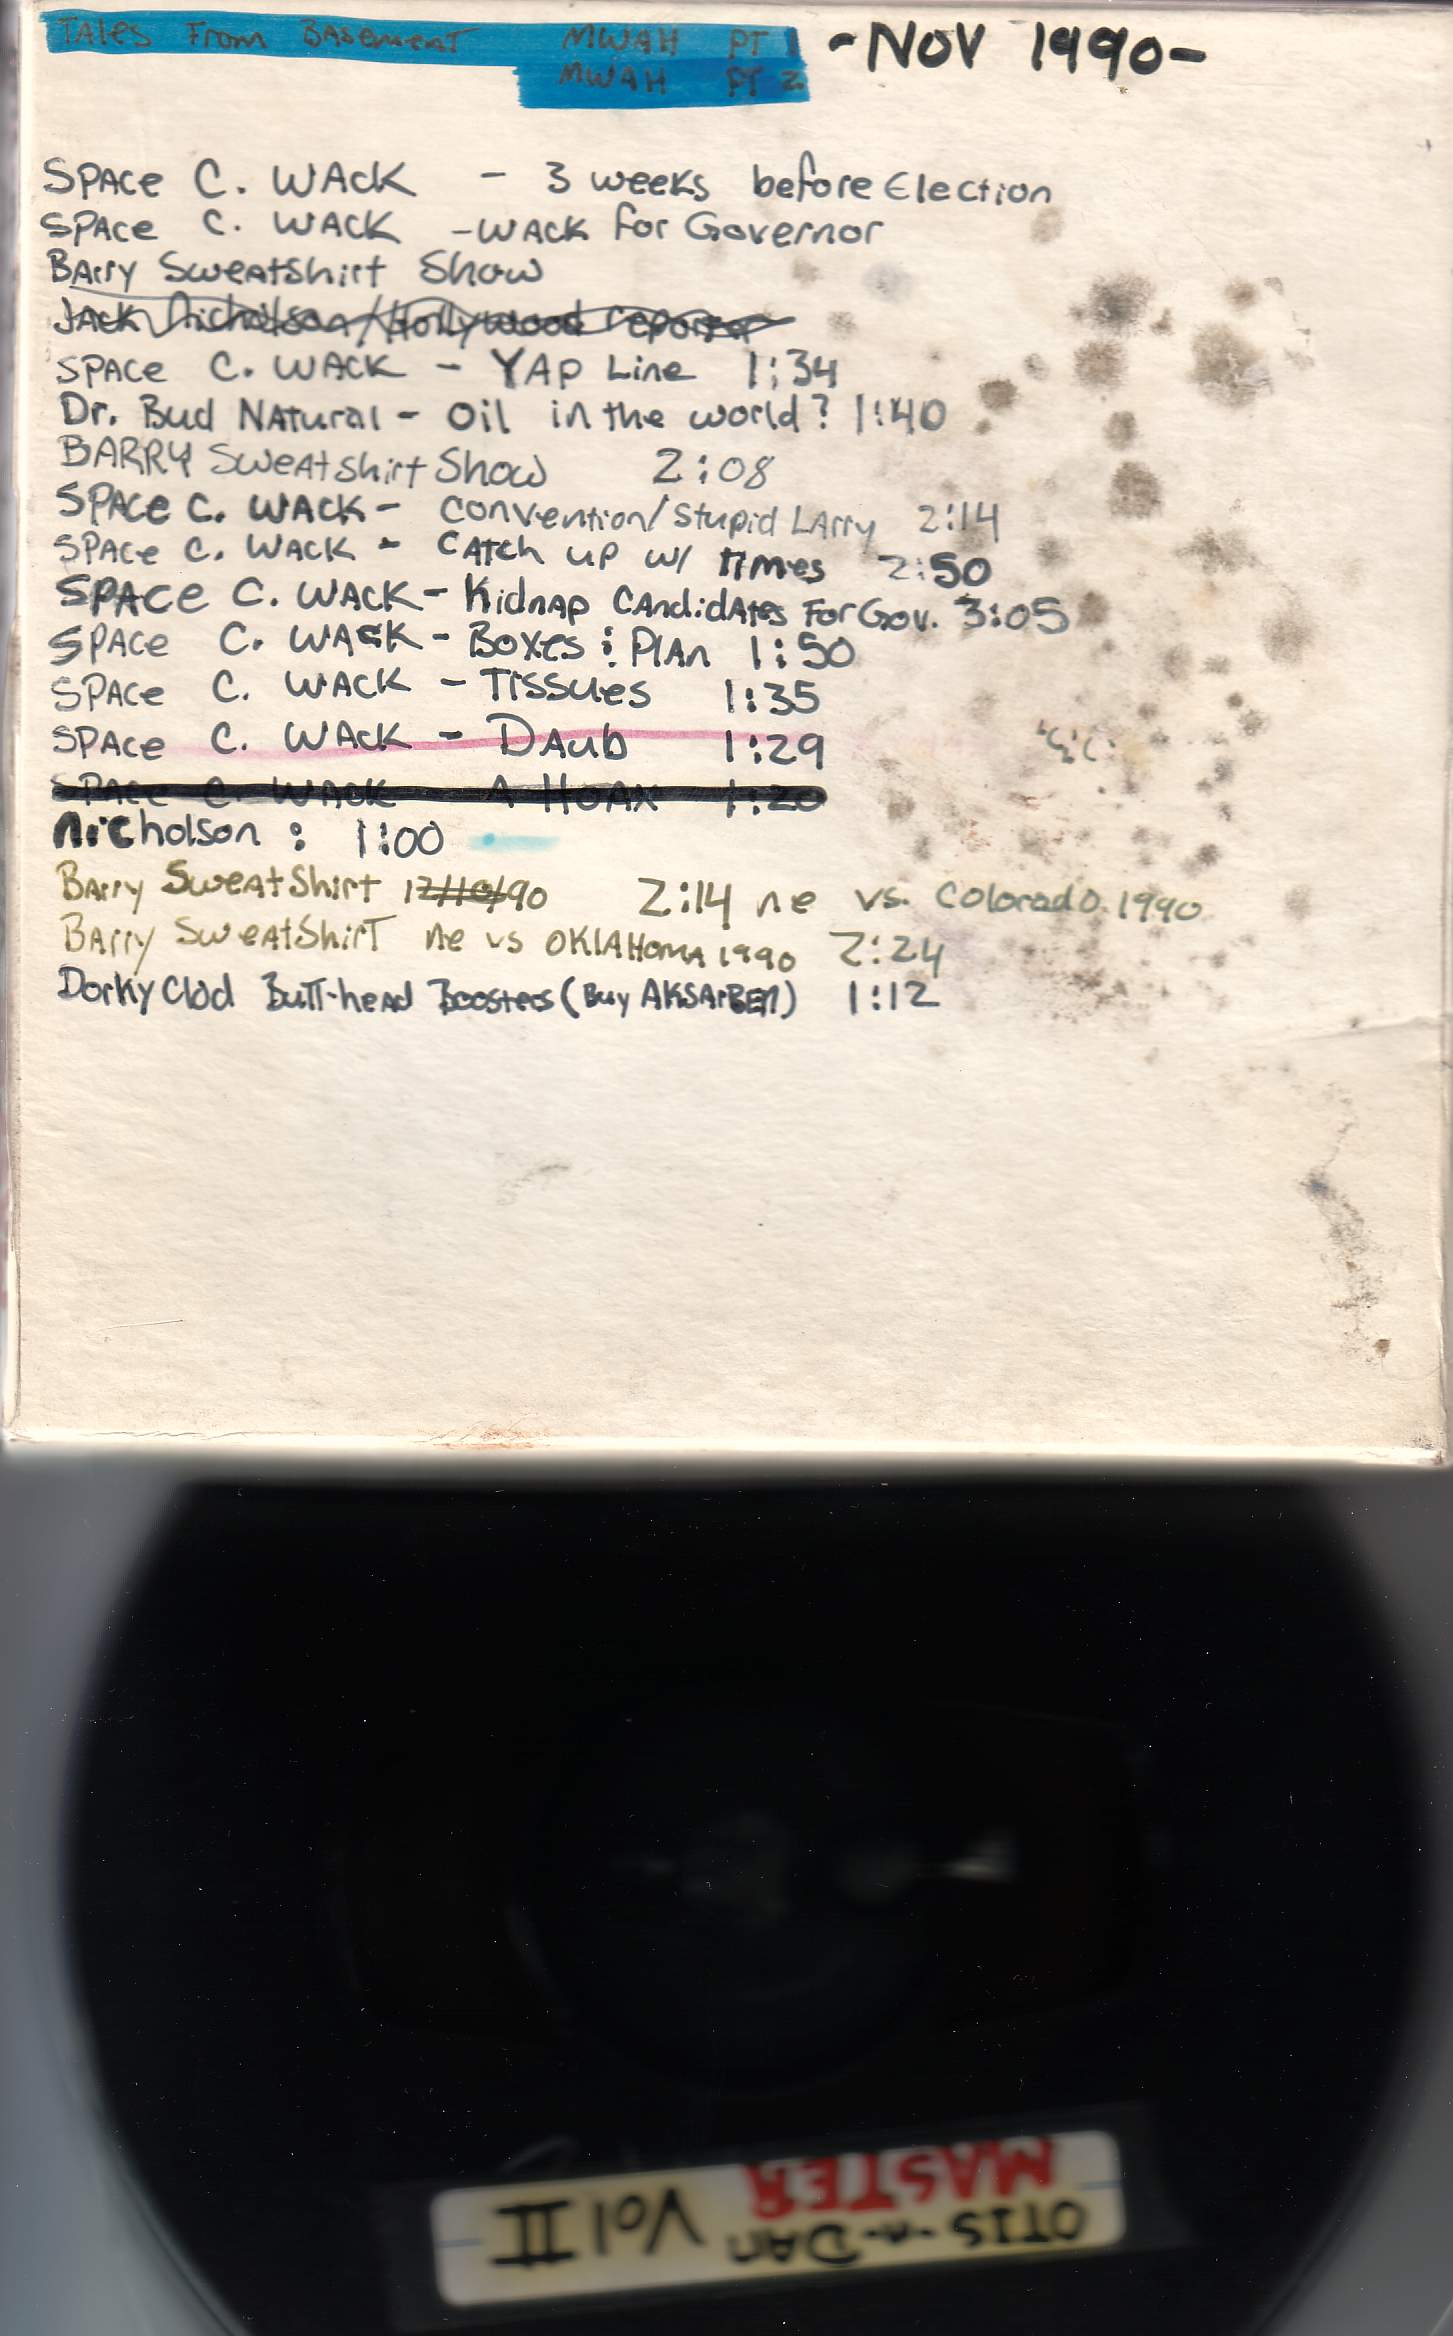 TALES From BASEMENT MWAH PT 1
MWAH PT 2
- NOV 1990 -
SPACE C. WACK - 3 weeks before Election
SPACE C. WACK - WACK for Governor
BArry SweatShirt Show
JACK Nicholson/Hollywood reporter
SPACE C. WACK - YAP Line 1:34
Dr. Bud NAtural - Oil in the world? 1:40
BARRY Sweatshirt Show 2:08
SPACE C. WACK - Convention/Stupid LArry 2:14
SPACE C. WACK - CATCH UP W/ TIMES 2:50
SPACE C. WACK - Kidnap CAndidAtes For Gov. 3:05
SPACE C. WACK - Boxes : PlAn 1:50
SPACE C. WACK - TISSUES 1:35
SPACE C. WACK - DAub 1:29
SPACE C. WACK - A HOAX 1:20
Nicholson : 1:00
BArry SweatShirt 12/10/90 2:14 ne vs. Colorado 1990
BArry SweatShirt ne vs OKLAHOMA 1990 2:24
Dorky Clod Butt-head Boosters (Buy AKSArBEN) 1:12
OTIS-n-DAn Vol II
MASTER